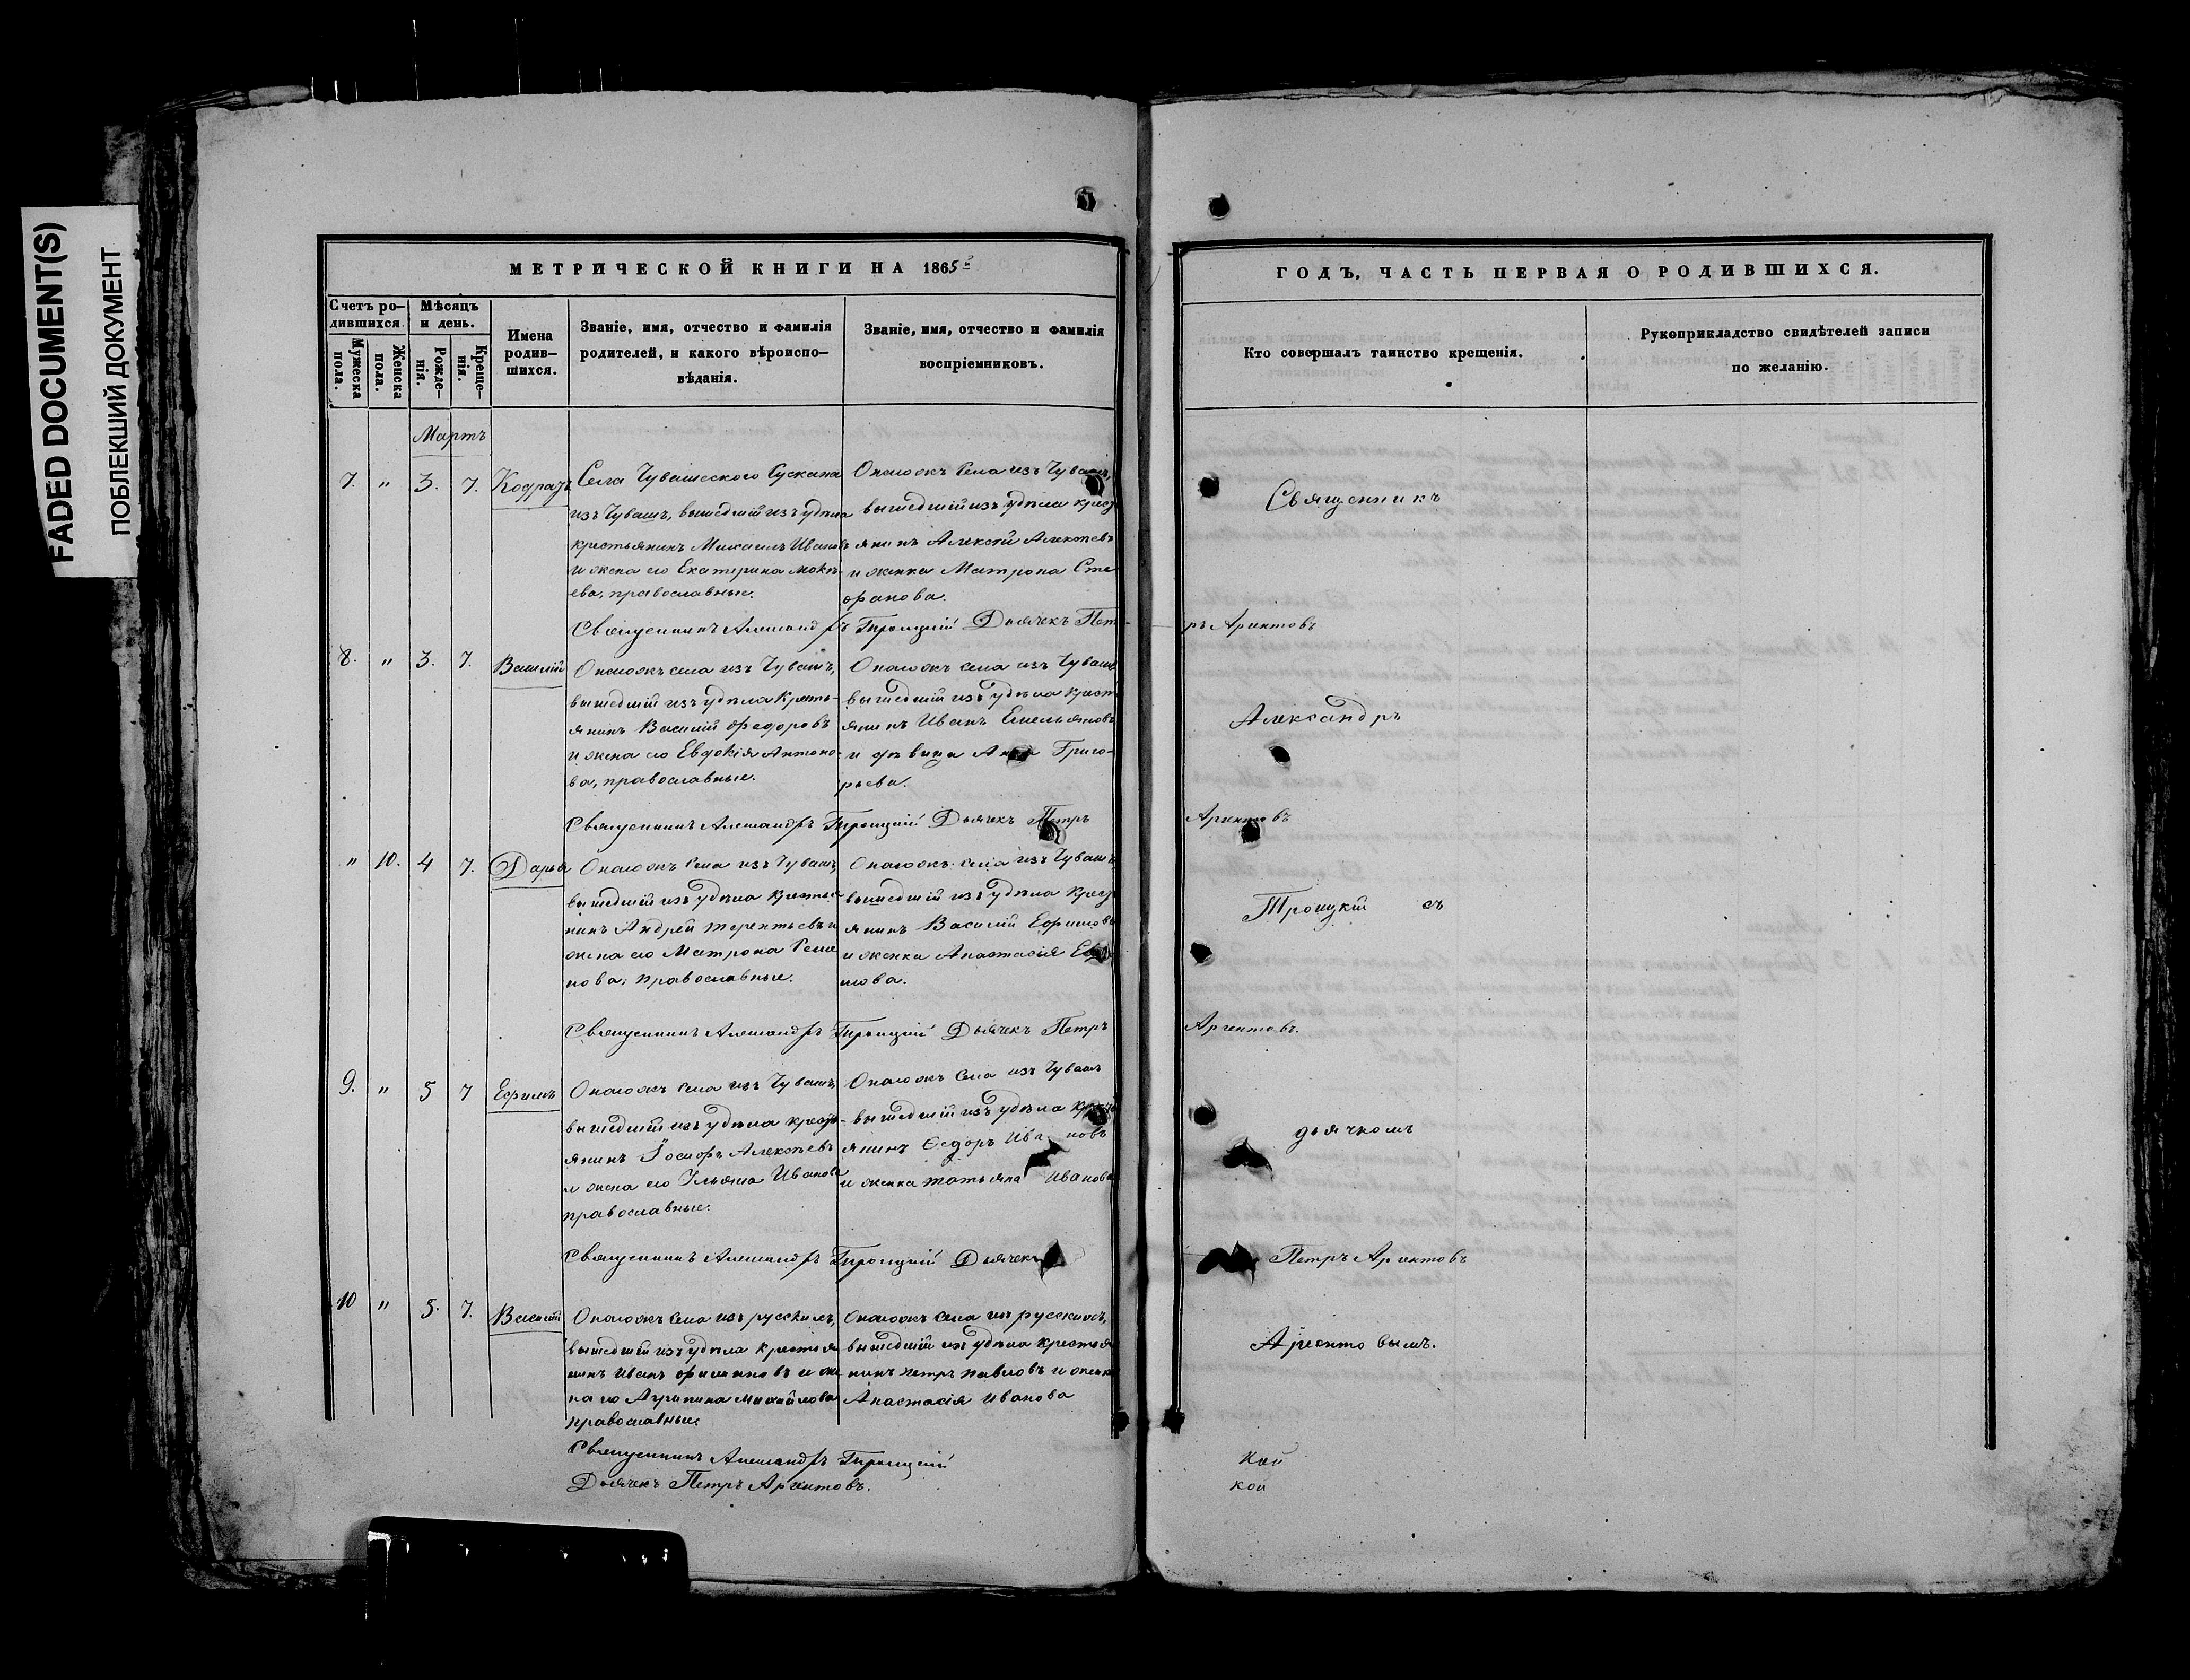 FADED DOCUMENT(S)
ПОБЛЕКШИЙ ДОКУМЕНТ
МЕТРИЧЕСКОЙ КНИГИ НА 1865
Счетъ родившихся.
Мужеска пола.
Женска пола.
Мѣсяцъ и день.
Рожденія.
Крещенія.
Имена родившихся.
Званіе, имя, отчество и фамилія
родителей, и какого вѣроиспо-
вѣданія.
Званіе, имя, отчество и фамилія
воспріемниковъ.
Мартъ
7. " 3. 7. Кодратъ
Села Чувашскаго Сускана
изъ Чувашъ, вышедшій изъ удѣла
крестьянинъ Михаилъ Ивановъ
и жена его Екатерина
ева, православные.
Онагожъ села изъ Чувашъ,
вышедшій изъ удѣла крест
янинъ Алексѣй Алексѣевъ
и женка Матрона Сте
фанова.
Священникъ Александръ Троицкій Дьячекъ Пет-
8. " 3. 7. Василій
Онагожъ села изъ Чувашъ,
вышедшій изъ удѣла кресть-
янинъ Василій Федоровъ
и жена его Евдокія Антоно-
ва, православные.
Онагожъ села изъ Чувашъ
вышедшій изъ удѣла крест
янинъ Иванъ Емельяновъ
и дѣвица Анна Григо-
рьева.
Священникъ Александръ Троицкій Дьячекъ Петръ
" 10. 4 7. Дарья
Онагожъ села изъ Чувашъ,
вышедшій изъ удѣла крестья
нинъ Андрей Терентьевъ и
жена его Матрона Семе
нова, православные.
Онагожъ села изъ Чувашъ,
вышедшій изъ удѣла крест
янинъ Василій Ефимовъ
и женка Анастасія
мова.
Священникъ Александръ Троицкій Дьячекъ Петръ
9. " 5 7 Ефимъ
Онагожъ села изъ Чувашъ,
вышедшій изъ удѣла крест-
янинъ Іосифъ Алексѣевъ
и жена его Ульяна Иванова
православные.
Онагожъ села изъ Чувашъ
вышедшій изъ удѣла крестъ
янинъ Ѳедоръ Ивановъ
и женка Татьяна Иванова
Священникъ Александръ Троицкій Дьячекъ
10 " 5. 7. Василій
Онагожъ села изъ русскихъ,
вышедшій изъ удѣла крестья
нинъ Иванъ Филиповъ и же
на его Агрипина Михайлова
православные.
Онагожъ села изъ русскихъ,
вышедшій изъ удѣла крестья
нинъ Петръ Павловъ и женка
Анастасія Иванова
Священникъ Александръ Троицкій
Дьячекъ Петръ Аргентовъ.
ГОДЪ, ЧАСТЬ ПЕРВАЯ О РОДИВШИХСЯ.
Кто совершалъ таинство крещенія.
Рукоприкладство свидѣтелей записи
по желанію.
Священникъ
ръ Аргентовъ
Александръ
Аргентовъ
Троицкій съ
Аргентовъ.
дьячкомъ
Петръ Аргентовъ
Аргентовымъ.
кой